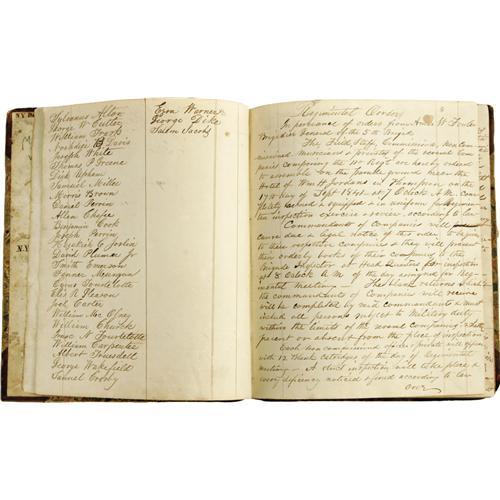 Sylvanus Alton
George W. Cutler
William
Davis
Joseph White
Thomas P Greene
Dick Upham
Samuel Miller
Morris Brown
Daniel Perrin
Allen Chafee
Benjamin Cook
Joseph Perrin
Hezekiah G Joslin
David Plumer Jr
Smith Emerson
Spencer
Cyrus
Elis R Gleason
Joel Carter
William
William Church
Isaac N
William Carpenter
Albert Truesdell
George Wakefield
Samuel Crosby
Ezra Warner
George Dike
Salem Jacobs
Regimental Orders
In pursuance of orders from Amos W Foster
Brigadier General of the 5th Brigd.
The Field, Staff, Commissioned, non com
missioned, Musicians & privates of the several Com
panies composing the Regt. are hereby ordered
to assemble on the parade ground near the
Hotel of Wm H. Jordans in Thompson on the
17th day of Sept 1841 at 7 Oclock A M. com
pletely armed & equipped & in uniform for
inspection exercise & review, according to law
Commandants of Companies will
cause due & legal notice of this order
to their respective companies & they will present
their orderly books of their companies to the
Brigade Inspector at Head Quarters for inspection
at 8 Oclock A M. of the day assigned for Regi
mental Meeting — The blank returns
the commandants of Companies will receive
will be completed by said commandants & must
include all persons subject to Military duty
within the limits of the several companies, whether
present or absent from the place of inspection
Each non commissioned officer & private will appear
with 12 blank catridges of the day of Regimental
meeting — A strict inspection will take place &
every deficiency noticed & fined according to law
Over